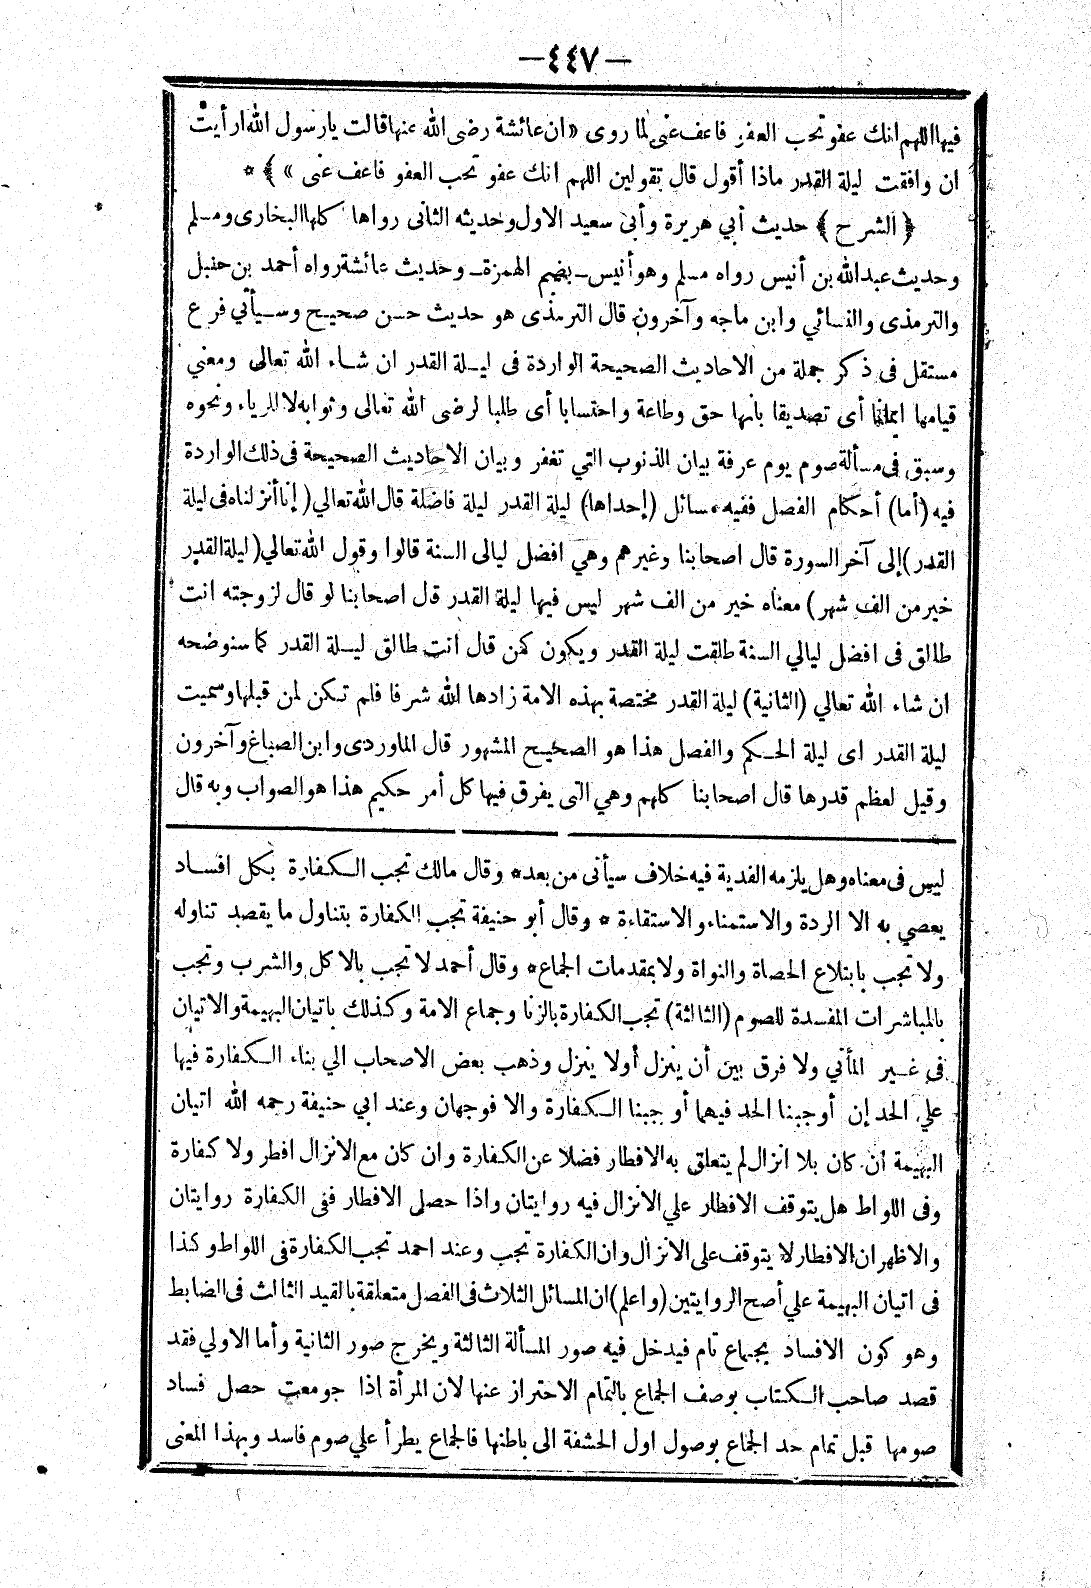 —٤٤٧—
فيها اللهم انك عفو تحب العفو فاعف عني لما روى «ان عائشة رضى الله عنها قالت يارسول الله ارأيت
ان وافقت ليلة القدر ماذا أقول قال تقولين اللهم انك عفو تحب العفو فاعف عنى» ﴾ *
﴿ الشرح ﴾ حديث أبي هريرة وأبى سعيد الاول وحديثه الثانى رواها كلها البخارى ومسلم
وحديث عبدالله بن أنيس رواه مسلم وهو أنيس ــ بضم الهمزة ــ وحديث عائشة رواه أحمد بن حنبل
والترمذى والنسائي وابن ماجه وآخرون قال الترمذى هو حديث حسن صحيح وسيأتي فرع
مستقل فى ذكر جملة من الاحاديث الصحيحة الواردة فى ليلة القدر ان شاء الله تعالى ومعني
قيامها ايمانا أى تصديقا بانها حق وطاعة واحتسابا أى طلبا لرضى الله تعالى وثوابه لا للرياء ونحوه
وسبق فى مسألة صوم يوم عرفة بيان الذنوب التي تغفر وبيان الاحاديث الصحيحة فى ذلك الواردة
فيه (أما) أحكام الفصل ففيه مسائل (إحداها) ليلة القدر ليلة فاضلة قال الله تعالي (إنا أنزلناه فى ليلة
القدر) إلى آخر السورة قال اصحابنا وغيرهم وهي افضل ليالى السنة قالوا وقول الله تعالي (ليلة القدر
خير من الف شهر) معناه خير من الف شهر ليس فيها ليلة القدر قال اصحابنا لو قال لزوجته انت
طالق فى افضل ليالي السنة طلقت ليلة القدر ويكون كمن قال انت طالق ليلة القدر كما سنوضحه
ان شاء الله تعالي (الثانية) ليلة القدر مختصة بهذه الامة زادها الله شرفا فلم تكن لمن قبلها وسميت
ليلة القدر اى ليلة الحكم والفصل هذا هو الصحيح المشهور قال الماوردى وابن الصباغ وآخرون
وقيل لعظم قدرها قال اصحابنا كلهم وهي التى يفرق فيها كل أمر حكيم هذا هو الصواب وبه قال
ليس فى معناه وهل يلزمه الفدية فيه خلاف سيأتى من بعد * وقال مالك تجب الكفارة بكل افساد
يعصي به الا الردة والاستمناء والاستقاءة * وقال أبو حنيفة تجب الكفارة بتناول ما يقصد تناوله
ولا تجب بابتلاع الحصاة والنواة ولا بمقدمات الجماع * وقال أحمد لا تجب بالاكل والشرب وتجب
بالمباشرات المفسدة للصوم (الثالثة) تجب الكفارة بالزنا وجماع الامة وكذلك باتيان البهيمة والاتيان
فى غير المأتي ولا فرق بين أن ينزل أولا ينزل وذهب بعض الاصحاب الي بناء الكفارة فيها
علي الحد إن أوجبنا الحد فيهما أوجبنا الكفارة والا فوجهان وعند ابي حنيفة رحمه الله اتيان
البهيمة ان كان بلا انزال لم يتعلق به الافطار فضلا عن الكفارة وان كان مع الانزال افطر ولا كفارة
وفى اللواط هل يتوقف الافطار علي الانزال فيه روايتان واذا حصل الافطار ففى الكفارة روايتان
والاظهر ان الافطار لا يتوقف على الانزال وان الكفارة تجب وعند احمد تجب الكفارة فى اللواط وكذا
فى اتيان البهيمة علي أصح الروايتين (واعلم) ان المسائل الثلاث فى الفصل متعلقة بالقيد الثالث فى الضابط
وهو كون الافساد بجماع تام فيدخل فيه صور المسألة الثالثة ويخرج صور الثانية وأما الاولي فقد
قصد صاحب الكتاب بوصف الجماع بالتمام الاحتراز عنها لان المرأة اذا جومعت حصل فساد
صومها قبل تمام حد الجماع بوصول اول الحشفة الى باطنها فالجماع يطرأ علي صوم فاسد وبهذا المعنى